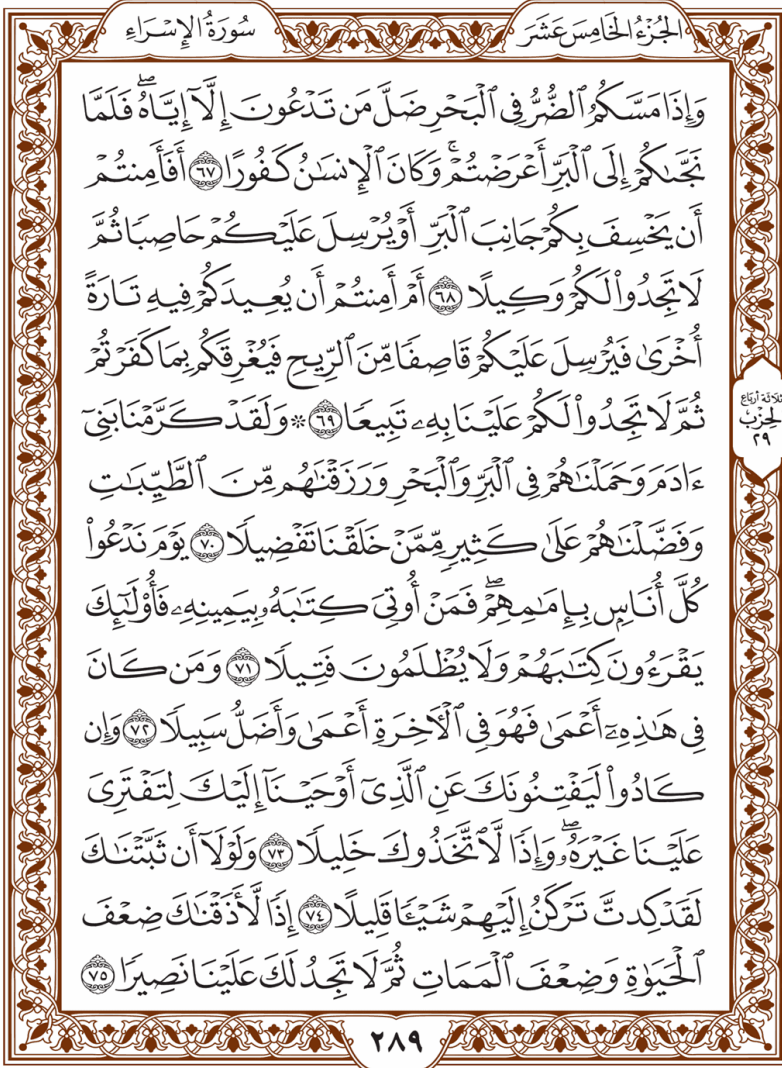 الجُزْءُ الخَامِسَ عَشَرَ
سُورَةُ الإِسْرَاءِ
وَإِذَا مَسَّكُمُ ٱلضُّرُّ فِي ٱلْبَحْرِ ضَلَّ مَن تَدْعُونَ إِلَّآ إِيَّاهُۖ فَلَمَّا
نَجَّىٰكُمْ إِلَى ٱلْبَرِّ أَعْرَضْتُمْۚ وَكَانَ ٱلْإِنسَٰنُ كَفُورًا ٦٧ أَفَأَمِنتُمْ
أَن يَخْسِفَ بِكُمْ جَانِبَ ٱلْبَرِّ أَوْ يُرْسِلَ عَلَيْكُمْ حَاصِبٗا ثُمَّ
لَا تَجِدُوا۟ لَكُمْ وَكِيلًا ٦٨ أَمْ أَمِنتُمْ أَن يُعِيدَكُمْ فِيهِ تَارَةً
أُخْرَىٰ فَيُرْسِلَ عَلَيْكُمْ قَاصِفٗا مِّنَ ٱلرِّيحِ فَيُغْرِقَكُم بِمَا كَفَرْتُمْ
ثُمَّ لَا تَجِدُوا۟ لَكُمْ عَلَيْنَا بِهِۦ تَبِيعٗا ٦٩ ۞ وَلَقَدْ كَرَّمْنَا بَنِيٓ
ءَادَمَ وَحَمَلْنَٰهُمْ فِي ٱلْبَرِّ وَٱلْبَحْرِ وَرَزَقْنَٰهُم مِّنَ ٱلطَّيِّبَٰتِ
وَفَضَّلْنَٰهُمْ عَلَىٰ كَثِيرٖ مِّمَّنْ خَلَقْنَا تَفْضِيلًا ٧٠ يَوْمَ نَدْعُوا۟
كُلَّ أُنَاسِۭ بِإِمَٰمِهِمْۖ فَمَنْ أُوتِيَ كِتَٰبَهُۥ بِيَمِينِهِۦ فَأُو۟لَٰٓئِكَ
يَقْرَءُونَ كِتَٰبَهُمْ وَلَا يُظْلَمُونَ فَتِيلًا ٧١ وَمَن كَانَ
فِي هَٰذِهِۦٓ أَعْمَىٰ فَهُوَ فِي ٱلْأٓخِرَةِ أَعْمَىٰ وَأَضَلُّ سَبِيلًا ٧٢ وَإِن
كَادُوا۟ لَيَفْتِنُونَكَ عَنِ ٱلَّذِيٓ أَوْحَيْنَآ إِلَيْكَ لِتَفْتَرِيَ
عَلَيْنَا غَيْرَهُۥۖ وَإِذٗا لَّٱتَّخَذُوكَ خَلِيلًا ٧٣ وَلَوْلَآ أَن ثَبَّتْنَٰكَ
لَقَدْ كِدتَّ تَرْكَنُ إِلَيْهِمْ شَيْـٔٗا قَلِيلًا ٧٤ إِذٗا لَّأَذَقْنَٰكَ ضِعْفَ
ٱلْحَيَوٰةِ وَضِعْفَ ٱلْمَمَاتِ ثُمَّ لَا تَجِدُ لَكَ عَلَيْنَا نَصِيرٗا ٧٥
ثَلَاثَةُ أَرْبَاعِ
الحِزْب
٢٩
٢٨٩